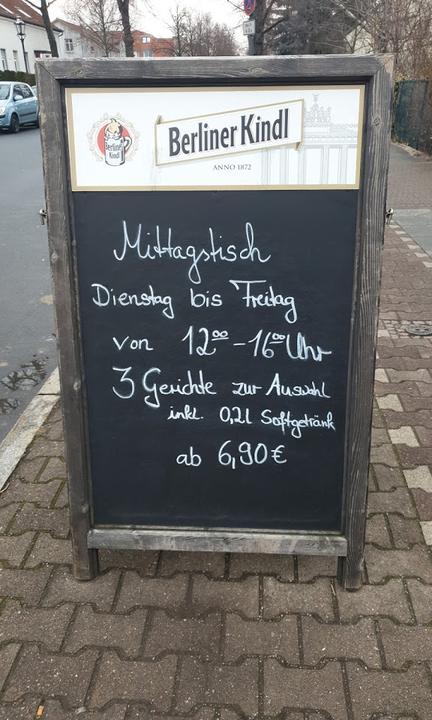 Berliner Kindl
Berliner Kindl
ANNO 1872
Mittagstisch
Dienstag bis Freitag
von 12⁰⁰ - 16⁰⁰ Uhr
3 Gerichte zur Auswahl
inkl. 0,2l Softgetränk
ab 6,90€